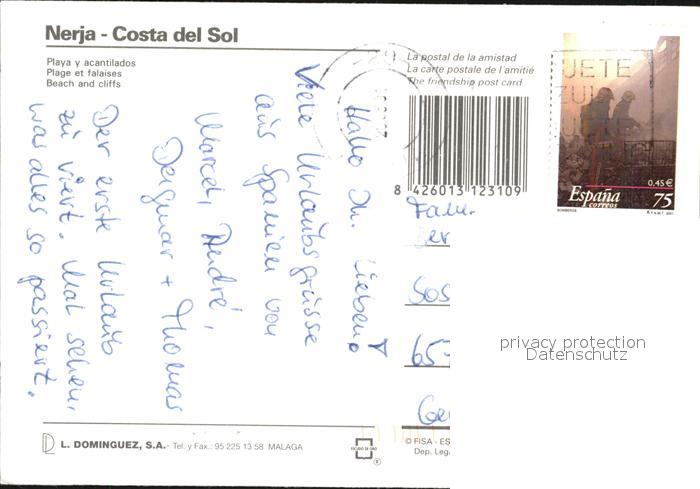 Nerja - Costa del Sol
Playa y acantilados
Plage et falaises
Beach and cliffs
La postal de la amistad
La carte postale de l'amitié
The friendship post card
8 426013 123109
UETE
ZUL
0,45 €
España
correos
75
BOMBEROS
Hallo Ihr Lieben!
Viele Urlaubsgrüsse
aus Spanien von
Marcel, André,
Dagmar + Thomas
Der erste Urlaub
zu viert. Mal sehen,
was alles so passiert.
Fam.
Ger
Sos
65-
Ge
privacy protection
Datenschutz
L. DOMINGUEZ, S.A. - Tel. y Fax.: 95 225 13 58 MALAGA
ESCUDO DE ORO
© FISA - ES
Dep. Leg